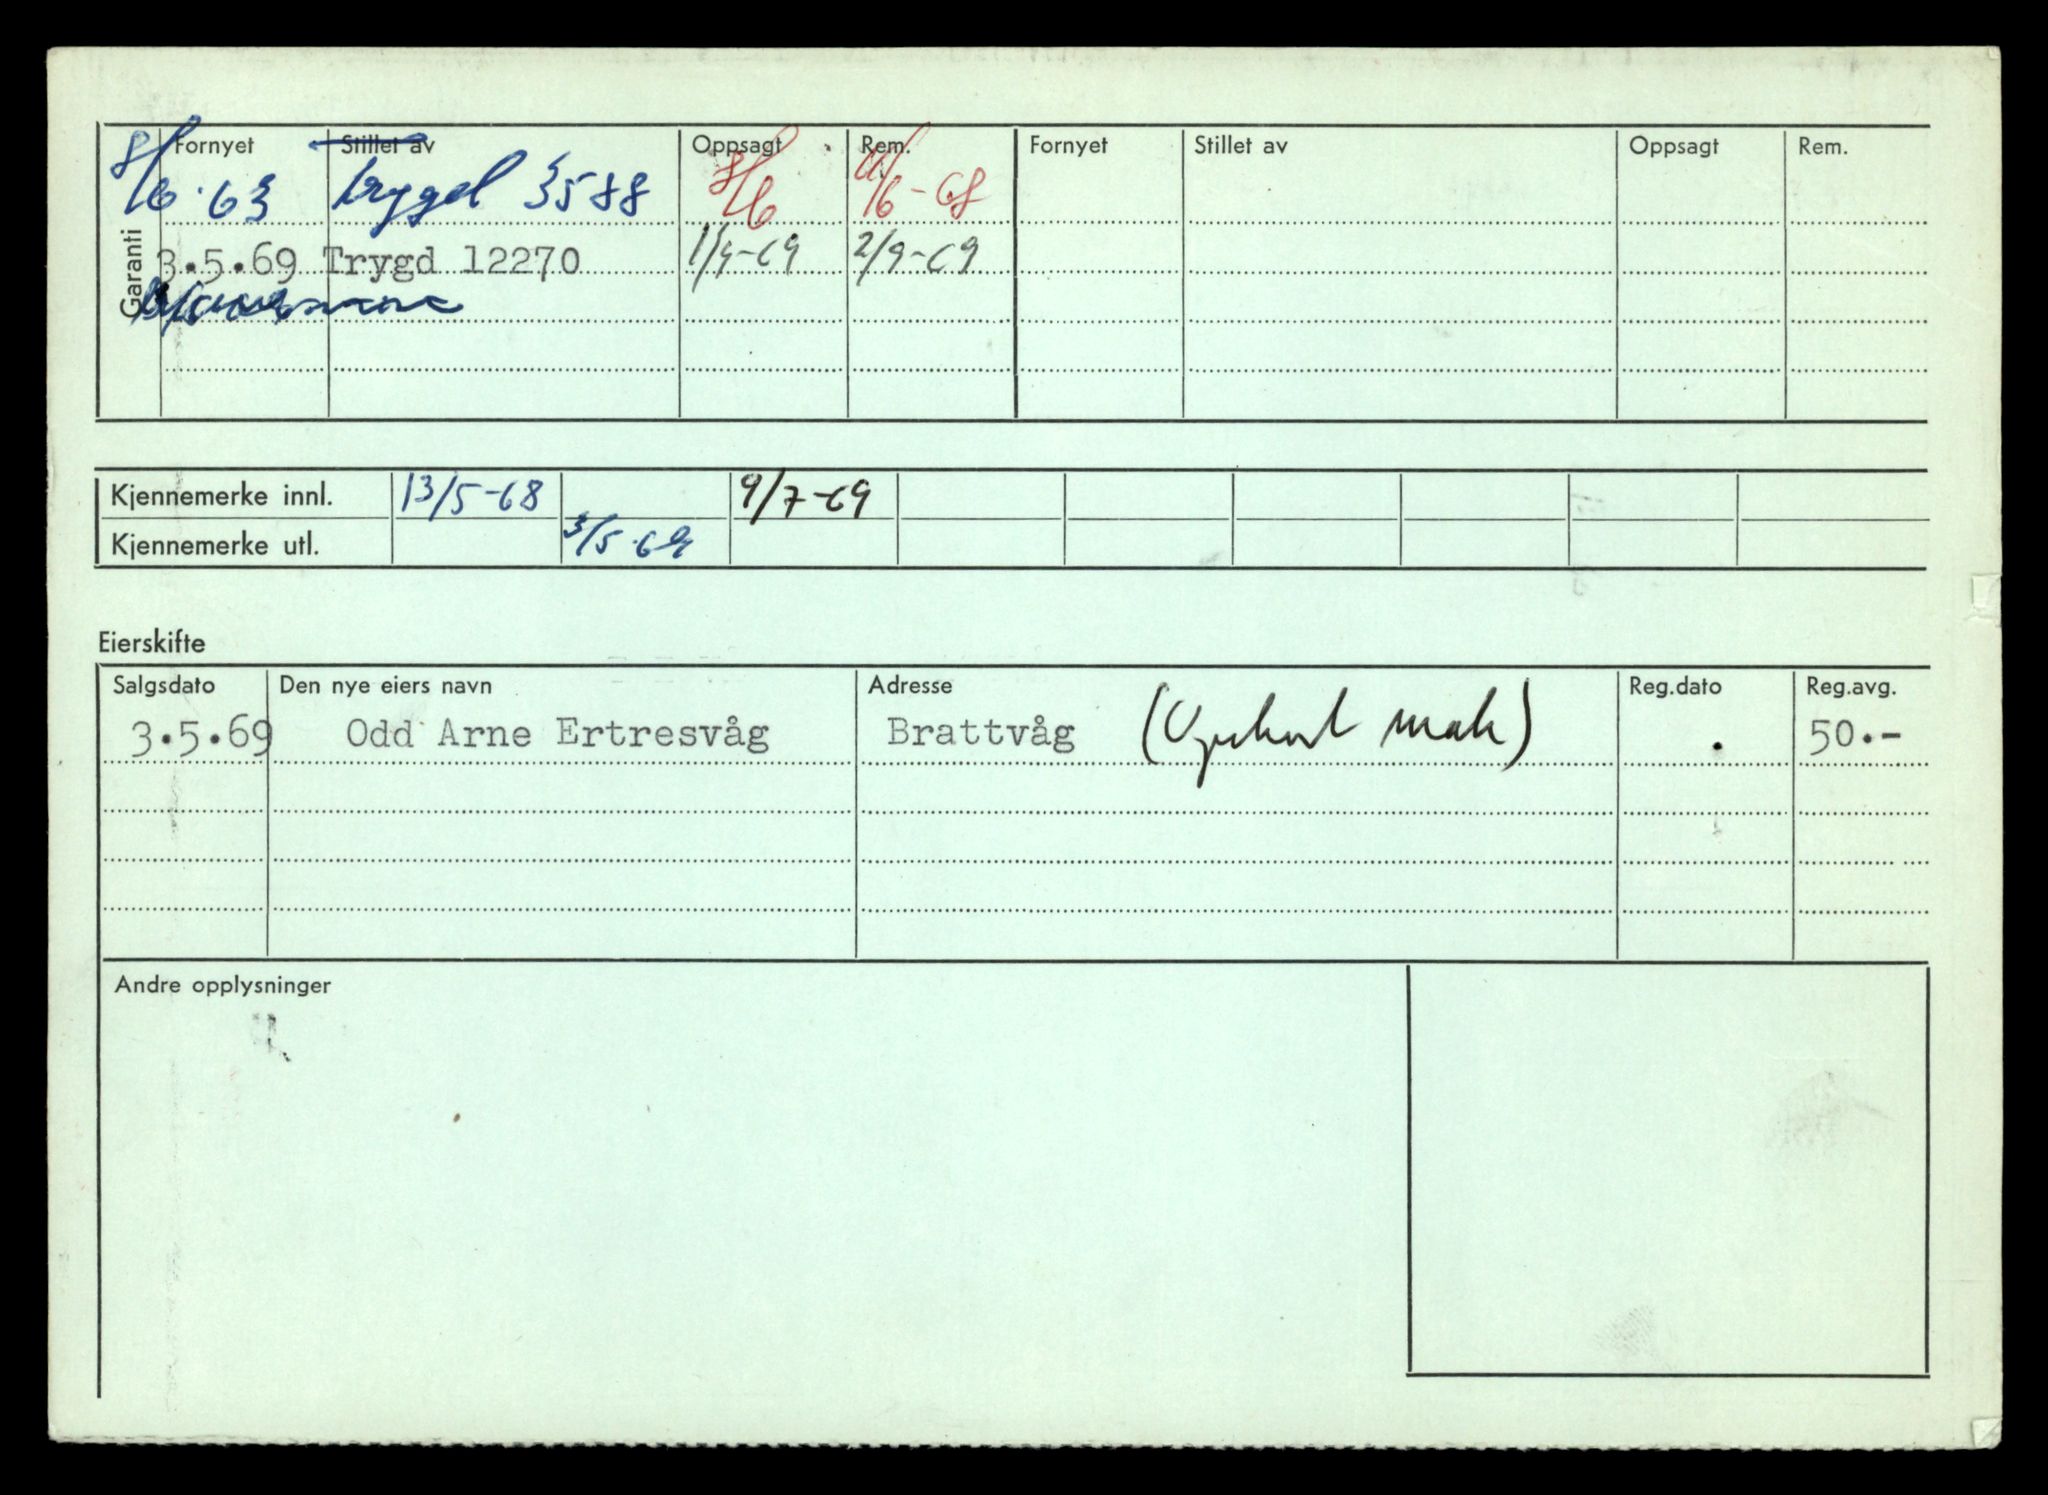 Garanti
Fornyet Stillet av Oppsagt Rem. Fornyet Stillet av Oppsagt Rem.
8/6.63 trygd 3588 8/6 11/6-68
3.5.69 Trygd 12270 1/9-69 2/9-69
Kjennemerke innl. 13/5-68 9/7-69
Kjennemerke utl. 3/5.69
Eierskifte
Salgsdato Den nye eiers navn Adresse Reg.dato Reg.avg.
3.5.69 Odd Arne Ertresvåg Brattvåg . 50.-
Andre opplysninger